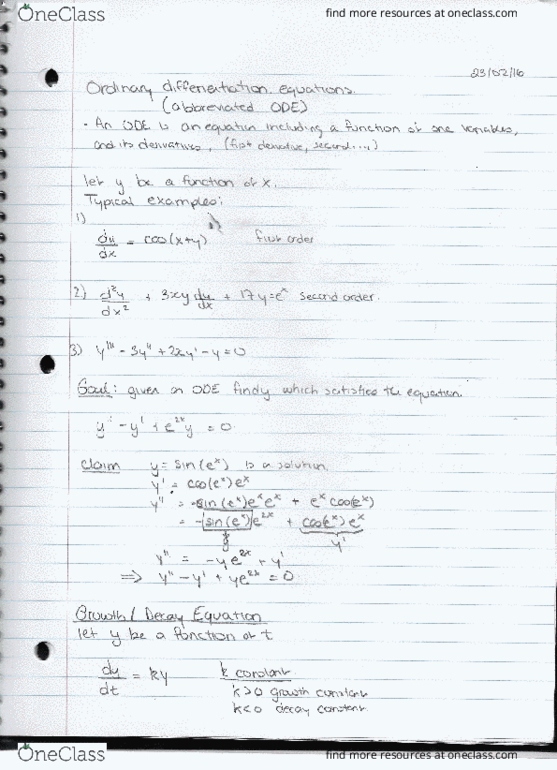 OneClass
find more resources at oneclass.com
23/02/16
Ordinary differentation equations.
(abbreviated ODE)
• An ODE is an equation including a function of one variables,
and its derivatives, (first derivative, second....)
let y be a function of x.
Typical examples:
1)
dy/dx = cos(x+y) first order
2) d²y/dx² + 3xy dy/dx + 17y = eˣ second order.
3) y''' - 3y'' + 2xy' - y = 0
Goal: given an ODE find y which satisfies the equation.
y'' - y' + e²ˣy = 0
Claim y = sin(eˣ) is a solution
y' = cos(eˣ)eˣ
y'' = -sin(eˣ)eˣeˣ + eˣcos(eˣ)
= -sin(eˣ)e²ˣ + cos(eˣ)eˣ
y y'
y'' = -ye²ˣ + y'
⇒ y'' - y' + ye²ˣ = 0
Growth / Decay Equation
let y be a function of t
dy/dt = ky k constant
k>0 growth constant
k<0 decay constant
OneClass
find more resources at oneclass.com